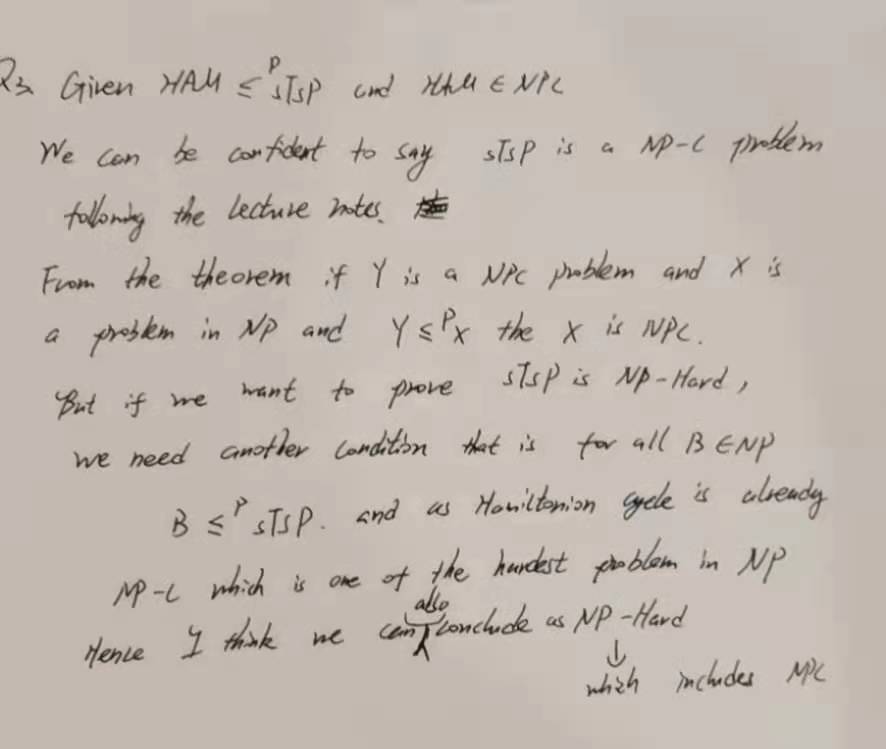 Q3 Given HAM ≤ᴾ sTSP and HAM ∈ NPC
We can be confident to say sTSP is a NP-C problem
following the lecture notes.
From the theorem if Y is a NPC problem and X is
a problem in NP and Y ≤ᴾ X the X is NPC.
But if we want to prove sTSP is NP-Hard,
we need another condition that is for all B ∈ NP
B ≤ᴾ sTSP. and as Hamiltonion cycle is already
NP-C which is one of the hardest problem in NP
Hence I think we can also conclude as NP-Hard
↓
which includes NPC